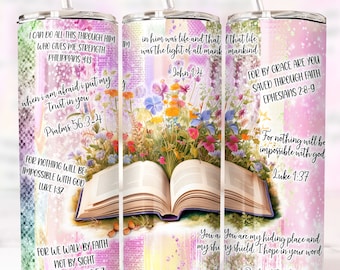 I CAN DO ALL THIS THROUGH HIM
WHO GIVES ME STRENGTH
PHILIPPIANS 4:13
when i am afraid i put my
Trust in you
Psalms 56:3-24
FOR NOTHING WILL BE
IMPOSSIBLE WITH GOD
LUKE 1:37
FOR WE WALK BY FAITH
NOT BY SIGHT
in him was life and that
was the light of all mankind
John 1:4
You are
my shield
FOR BY GRACE ARE YOU
SAVED THROUGH FAITH
EPHESIANS 2:8-9
For nothing will be
impossible with god
Luke 1:37
You are my hiding place and
my shield. I hope in your word